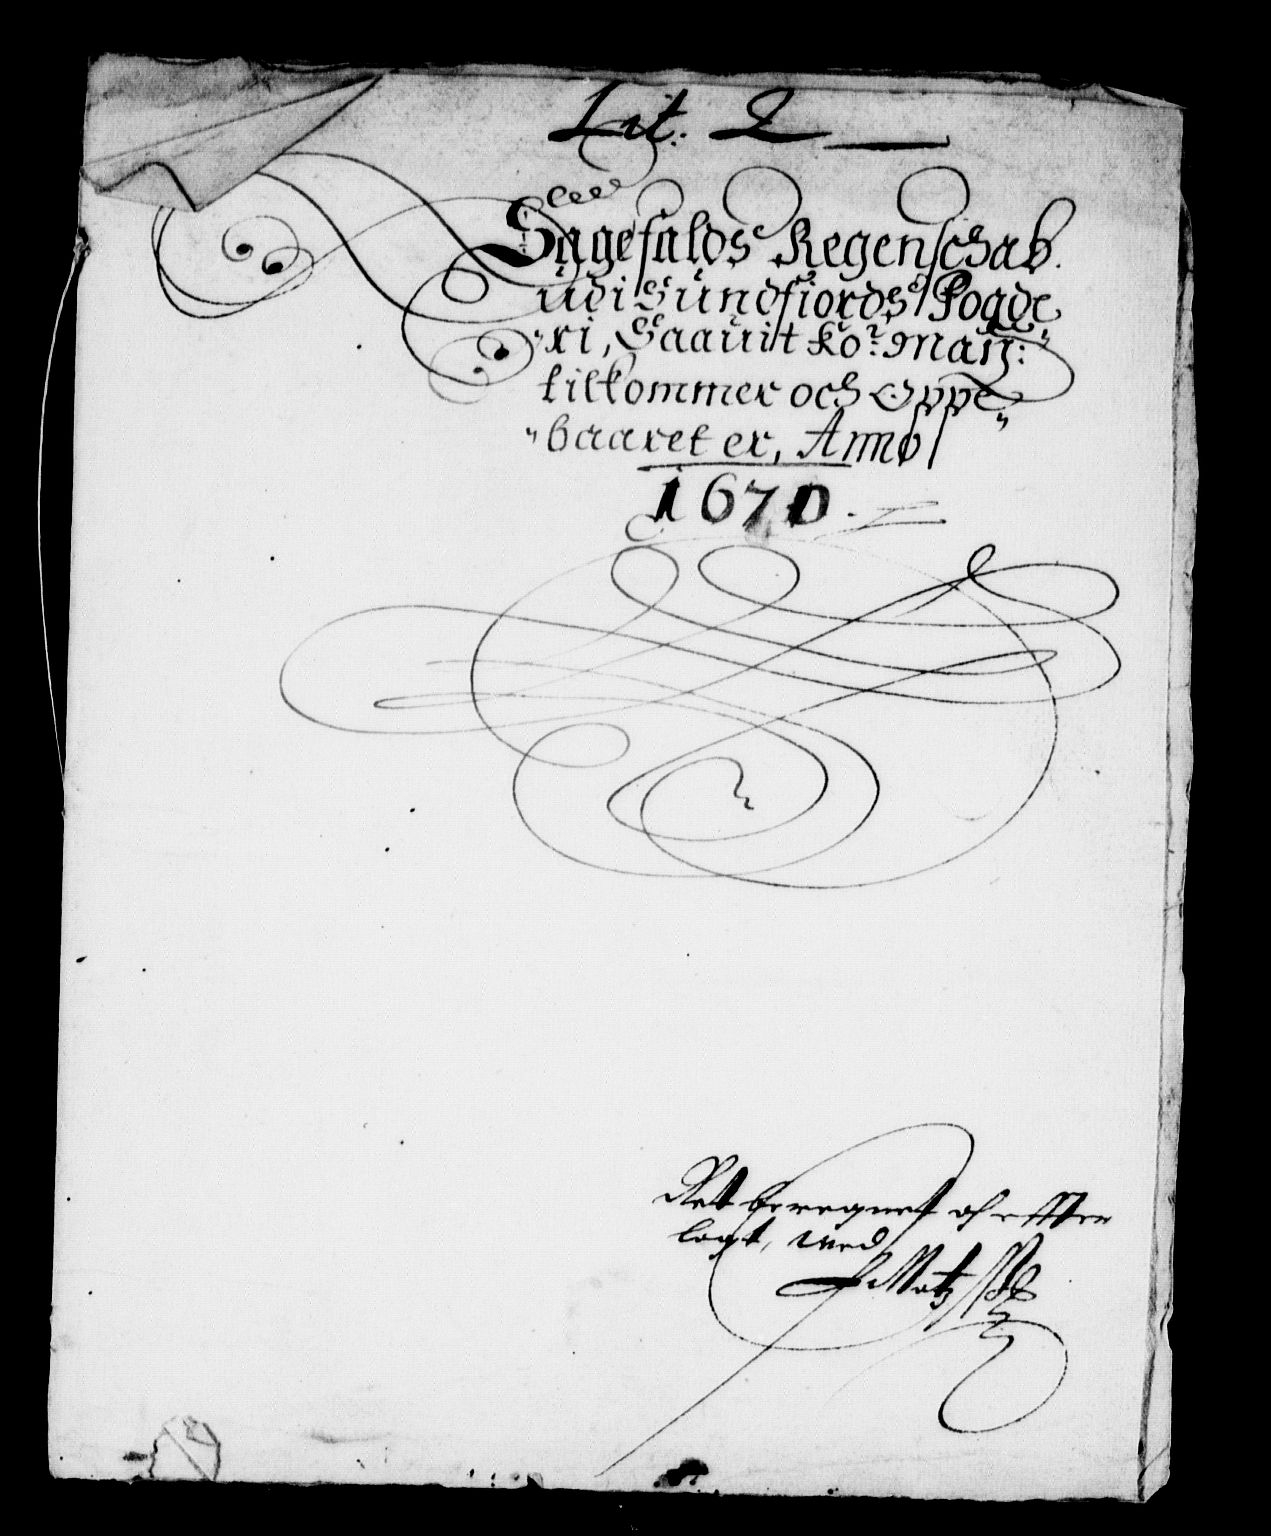 Lit: Q
Sagefalds Regenschab
udi Sundfiords Fogde
"ri, Saauit Ko: May:
tilkommer och Oppe"
"baaret er, Anno
1670.
Ret beregnet oh effter
lagt, med